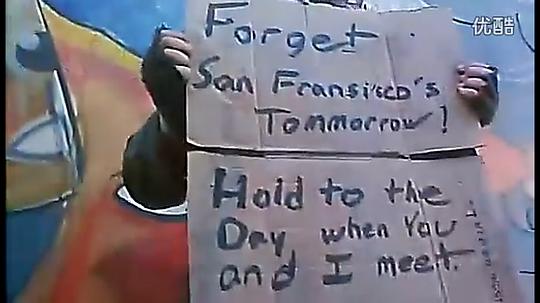 优酷
Forget
San Fransisco's
Tommorrow!
Hold to the
Day when You
and I meet.